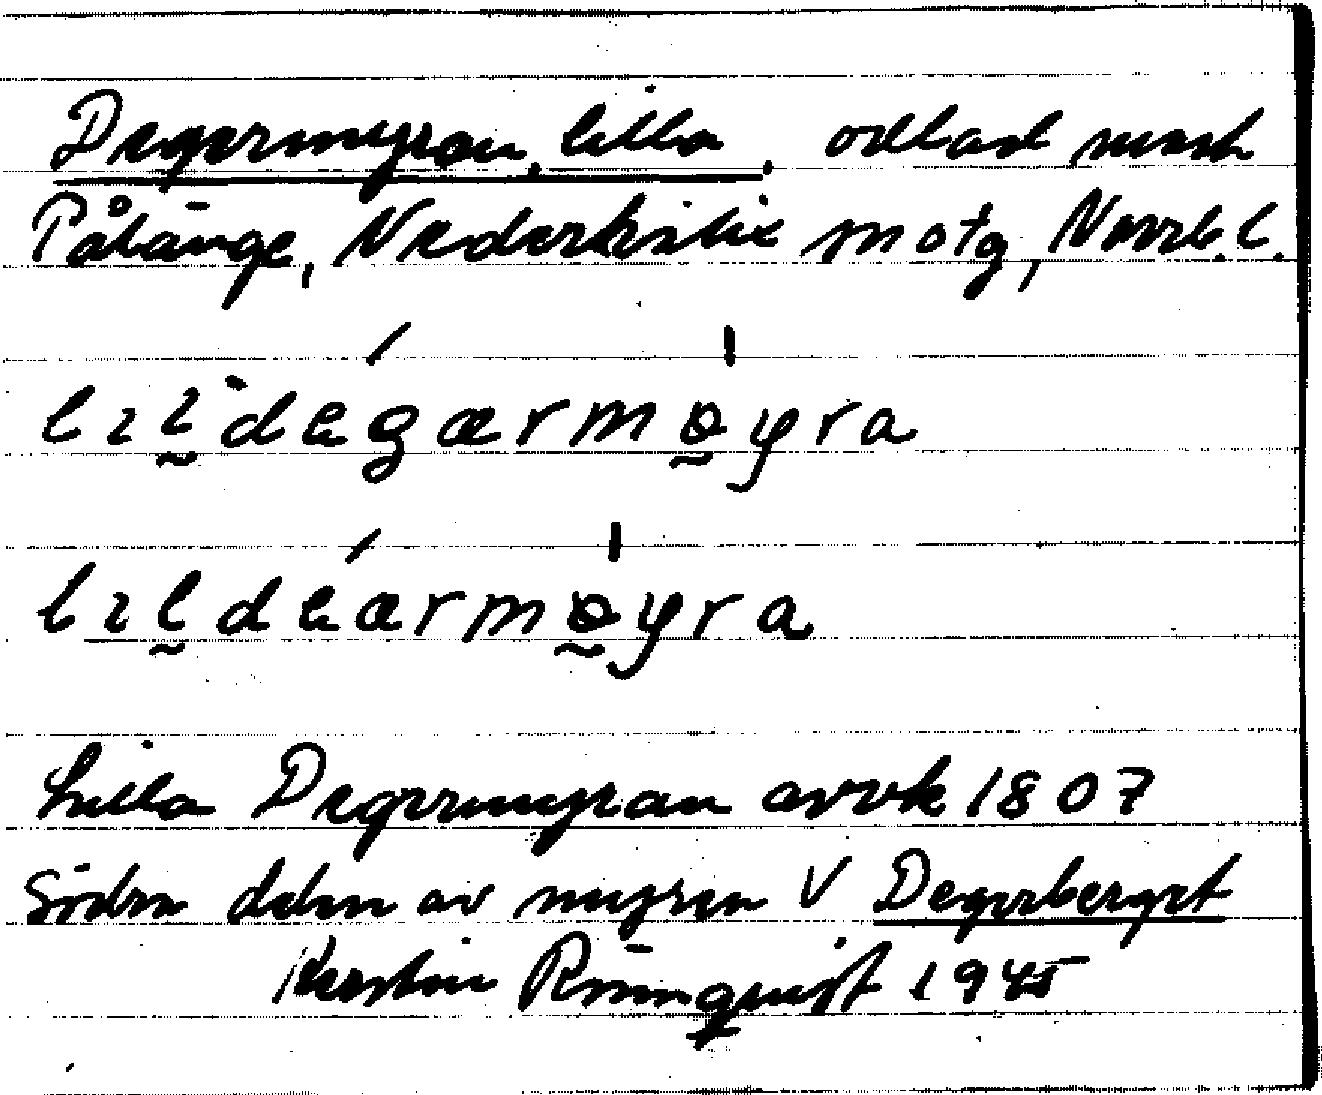 Degermyran, lilla, odlad mark
Pålänge, Nederkalix sn o tg, Norrb. l.
lıldegærmøyra
lıldeærmøyra
Lilla Degermyran avvk 1807
Södra delen av myran V Degerberget
Kerstin Rönnquist 1945